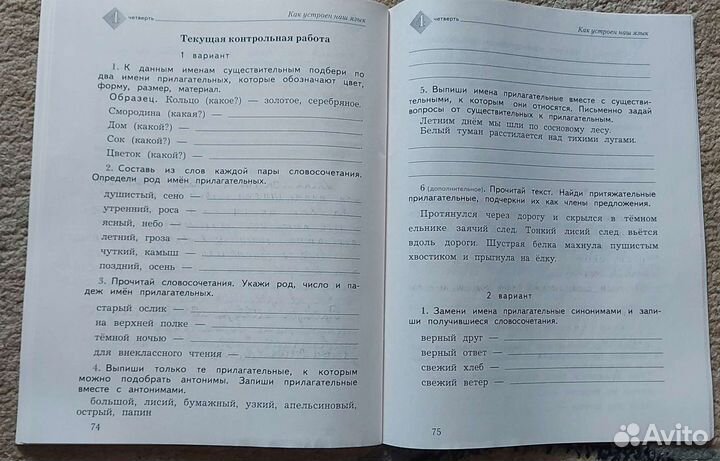 4
четверть
Как устроен наш язык
Текущая контрольная работа
1 вариант
1. К данным именам существительным подбери по
два имени прилагательных, которые обозначают цвет,
форму, размер, материал.
Образец. Кольцо (какое?) — золотое, серебряное.
Смородина (какая?) —
Дом (какой?) —
Сок (какой?) —
Цветок (какой?) —
2. Составь из слов каждой пары словосочетания.
Определи род имён прилагательных.
душистый, сено —
утренний, роса —
ясный, небо —
летний, гроза —
чуткий, камыш —
поздний, осень —
3. Прочитай словосочетания. Укажи род, число и па-
деж имён прилагательных.
старый ослик —
на верхней полке —
тёмной ночью —
для внеклассного чтения —
4. Выпиши только те прилагательные, к которым
можно подобрать антонимы. Запиши прилагательные
вместе с антонимами.
большой, лисий, бумажный, узкий, апельсиновый,
острый, папин
74
4
четверть
Как устроен наш язык
5. Выпиши имена прилагательные вместе с существи-
тельными, к которым они относятся. Письменно задай
вопросы от существительных к прилагательным.
Летним днём мы шли по сосновому лесу.
Белый туман расстилается над тихими лугами.
6 (дополнительное). Прочитай текст. Найди притяжательные
прилагательные, подчеркни их как члены предложения.
Протянулся через дорогу и скрылся в тёмном
ельнике заячий след. Тонкий лисий след вьётся
вдоль дороги. Шустрая белка махнула пушистым
хвостиком и прыгнула на ёлку.
2 вариант
1. Замени имена прилагательные синонимами и запи-
ши получившиеся словосочетания.
верный друг —
верный ответ —
свежий хлеб —
свежий ветер —
75
Avito